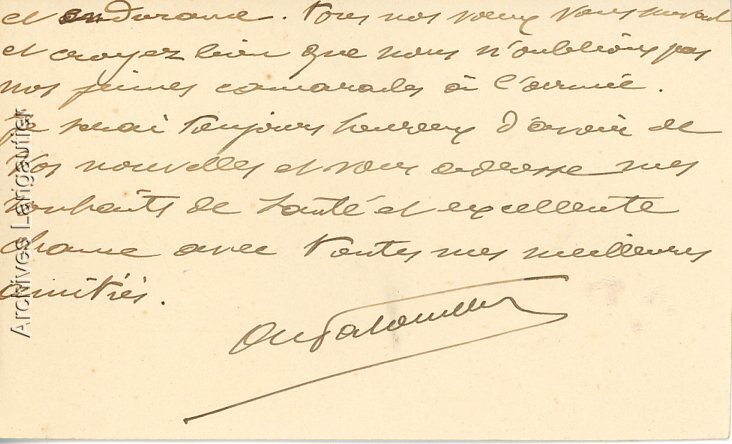 et endurance. Tous nos vœux vous suivent
et croyez bien que nous n'oublions pas
nos jeunes camarades à l'armée.
Je serai toujours heureux d'avoir de
vos nouvelles et vous adresse mes
souhaits de santé et excellente
chance avec toutes mes meilleures
amitiés.
Archives Langautier